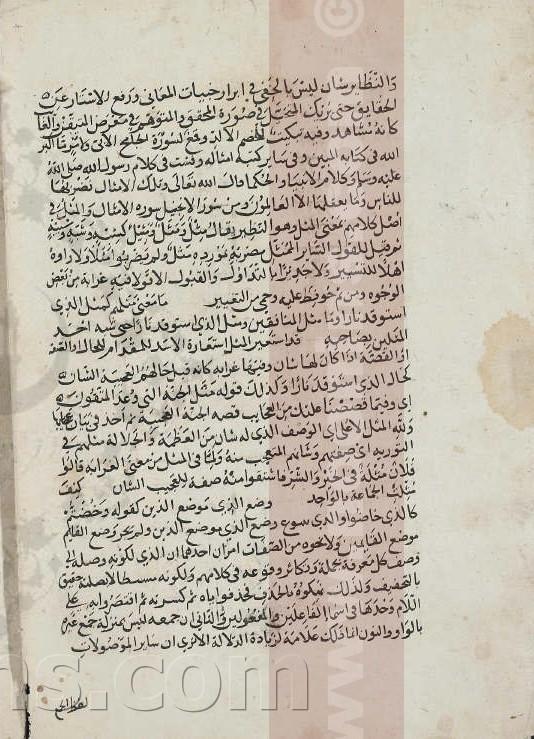 والنظائر شان ليس بالخفي في ابراز خبيات المعاني ورفع الاستار عن
الحقايق حتى تريك المتخيل في صورة المحقق والمتوهم في معرض المتيقن والغائب
كانه مشاهد وفيه تبكيت للخصم الالد وقمع لسورة الجامح الابي ولامر ما اكثر
الله في كتابه المبين وفي سائر كتبه امثاله وفشت في كلام رسول الله صلى الله
عليه وسلم وكلام الانبيا والحكما قال الله تعالى وتلك الامثال نضربها
للناس وما يعقلها الا العالمون ومن سور الانجيل سورة الامثال والمثل في
اصل كلامهم بمعنى المثل وهو النظير يقال مثل ومثل ومثيل كشبه وشبه وشبيه
ثم قيل للقول السائر الممثل مضربه بمورده مثل ولم يضربوا مثلا ولا راوه
اهلا للتسيير ولا جديرا بالتداول والقبول الا قولا فيه غرابة من بعض
الوجوه ومن ثم حوفظ عليه وحمي من التغيير ما معنى مثلهم كمثل الذي
استوقد نارا وما مثل المنافقين ومثل الذي استوقد نارا حتى شبه احد
المثلين بصاحبه قد استعير المثل استعارة الاسد للمقدام للحال او الصفة
او القصة اذا كان لها شان وفيها غرابة كانه قيل حالهم العجيبة الشان
كحال الذي استوقد نارا وكذلك قوله مثل الجنة التي وعد المتقون
اي وفيما قصصنا عليك من العجايب قصة الجنة العجيبة ثم اخذ في بيان عجايبها
ولله المثل الاعلى اي الوصف الذي له شان من العظمة والجلالة مثلهم في
التورية اي صفتهم وشانهم المتعجب منه ولما في المثل من معنى الغرابة قالوا
فلان مثلة في الخير والشر فاشتقوا منه صفة للعجيب الشان كيف
مثلت الجماعة بالواحد وضع الذي موضع الذين كقوله وخضتم
كالذي خاضوا والذي سوغ وضع الذي موضع الذين ولم يجز وضع القايم
موضع القايمين ولا نحوه من الصفات امران احدهما ان الذي لكونه وصلة الى
وصف كل معرفة بجملة وتكاثر وقوعه في كلامهم ولكونه مستطالا بصلته حقيق
بالتخفيف ولذلك نهكوه بالحذف فحذفوا ياه ثم كسرته ثم اقتصروا به على
اللام وحدها في اسما الفاعلين والمفعولين والثاني ان جمعه ليس بمنزلة جمع غيره
بالواو والنون انما ذلك علامة لزيادة الدلالة الا ترى ان ساير الموصولات